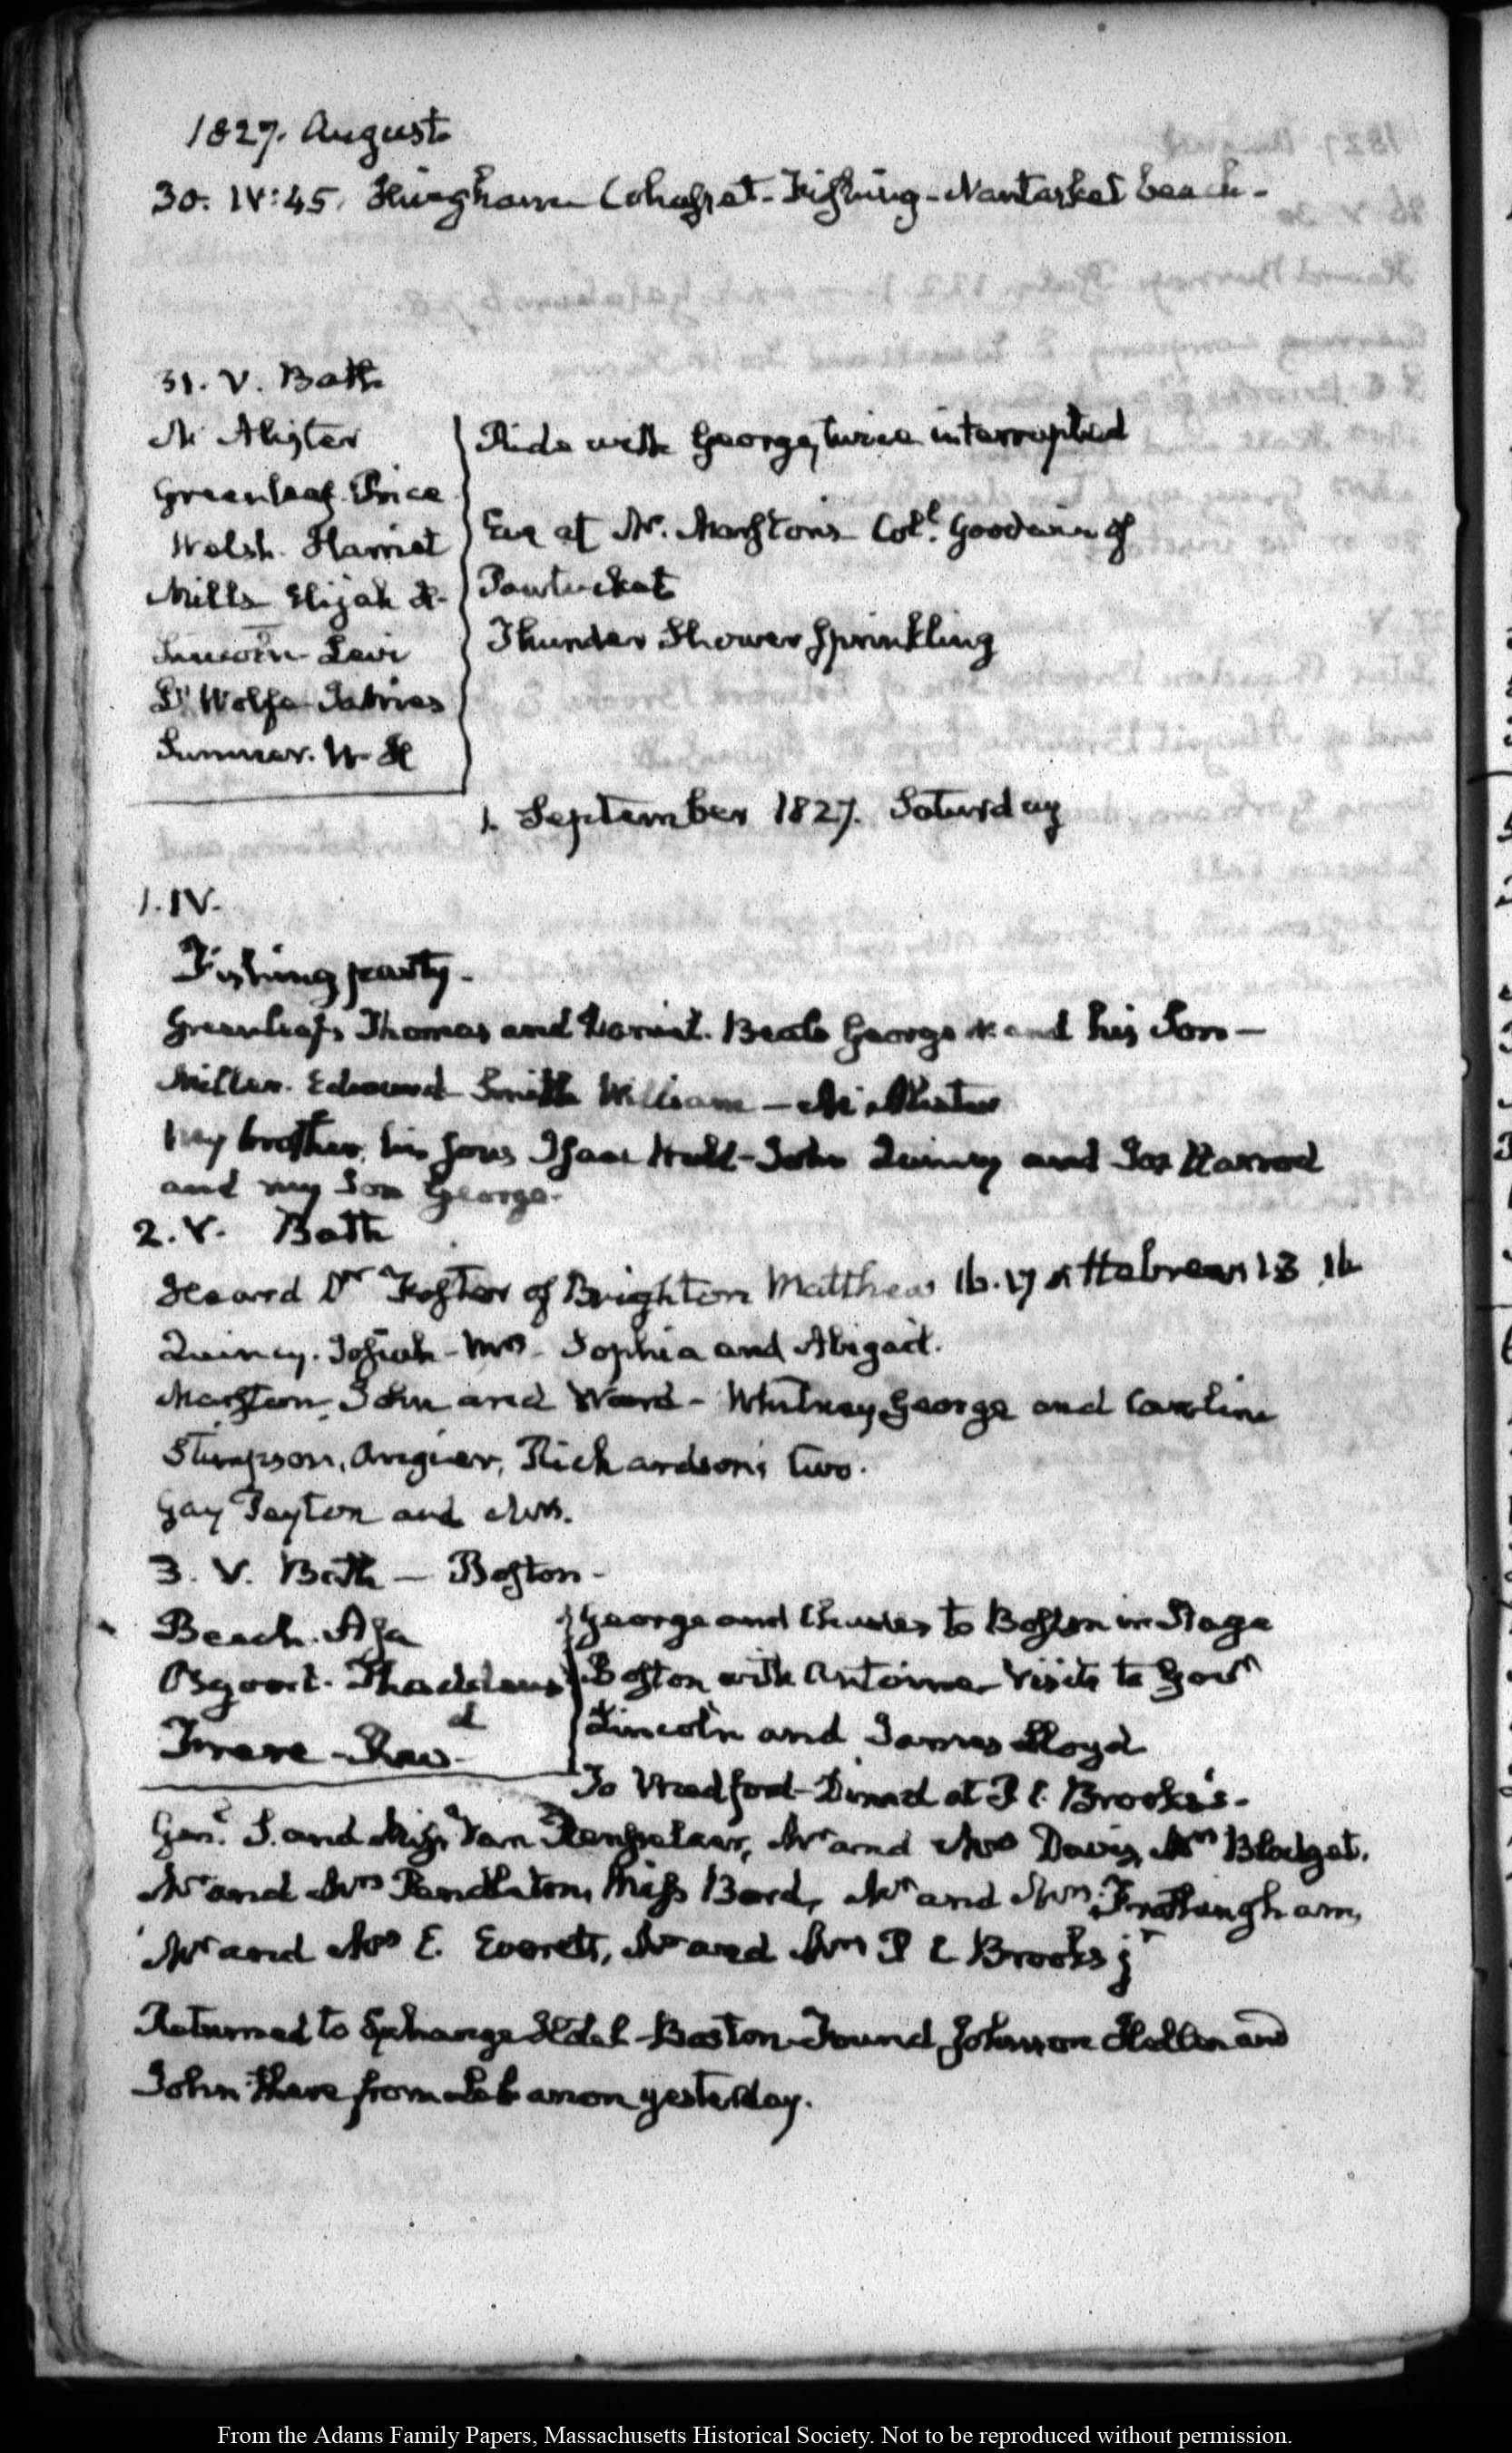 1827. August
30. IV:45. Hingham Cohasset - Fishing - Nantasket beach -
31. V. Bath
McAlister
Greenleaf. Price
Welsh. Harriet
Mills Elijah H.
Lincoln Levi
D'Wolfe James
Sumner. W H
Ride with George, twice interrupted
Eve at Mr. Marston's Coll. Goodwin of
Pawtucket
Thunder Shower Sprinkling
1. September 1827. Saturday
1. IV.
Fishing party -
Greenleafs Thomas and Daniel. Beale George W. and his Son —
Miller. Edmund Smith William — McAlister
My brother, his sons Isaac Hull - John Quincy and Jos Harrod
and my Son George.
2. V. Bath
Heard Dr Foster of Brighton Matthew 16. 17 Hebrews 13 16
Quincy. Josiah - Mrs - Sophia and Abigail.
Marston John and Ward - Whitney George and Caroline
Stimpson, Angier, Richardsons two.
Gay Payton and Mrs.
3. V. Bath — Boston -
Beach. Asa
Osgood. Thaddeus
Frere
George and Charles to Boston in Stage
Boston with Antoine - Visits to Govr
Lincoln and James Lloyd
To Medford - Dined at P. C. Brooks's -
Genl. S. and Miss Van Rensselaer, Mr and Mrs Davis, Mrs Blodget.
Mr and Mrs Pendleton, Miss Bord, Mr and Mrs Frothingham,
Mr and Mrs E. Everett, Mr and Mrs P C Brooks jr
Returned to Exchange Hotel - Boston Found Johnson Hellen and
John there from Lebanon yesterday.
From the Adams Family Papers, Massachusetts Historical Society. Not to be reproduced without permission.